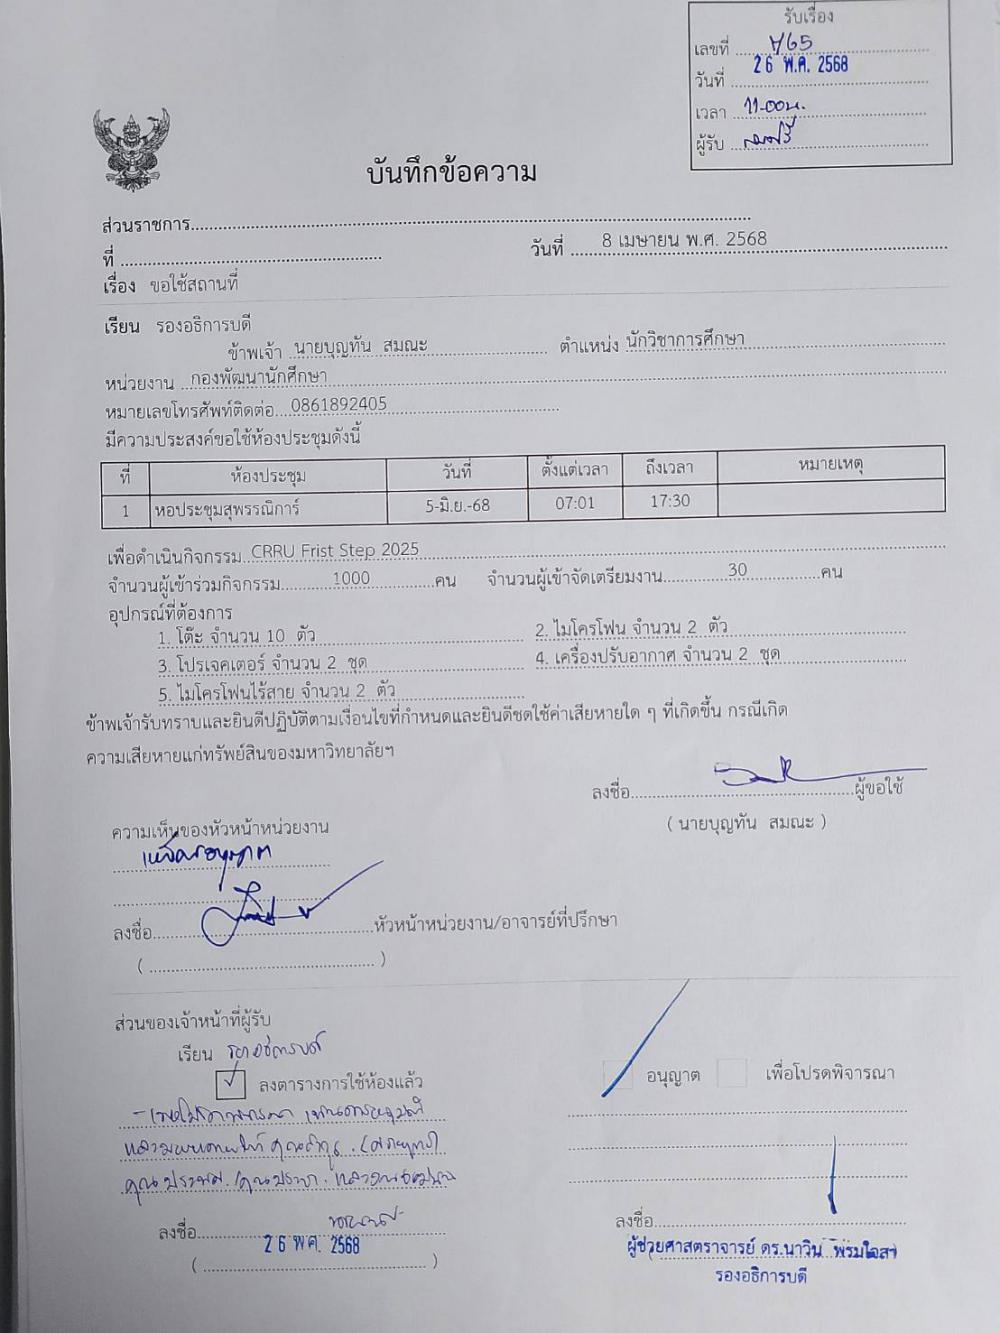 รับเรื่อง
เลขที่ ........................
26 พ.ค. 2568
วันที่ ........................
เวลา 11.00 น.
ผู้รับ ........................
บันทึกข้อความ
ส่วนราชการ........................
ที่ ........................ วันที่ 8 เมษายน พ.ศ. 2568
เรื่อง ขอใช้สถานที่
เรียน รองอธิการบดี
ข้าพเจ้า นายบุญทัน สมณะ ตำแหน่ง นักวิชาการศึกษา
หน่วยงาน กองพัฒนานักศึกษา
หมายเลขโทรศัพท์ติดต่อ 0861892405
มีความประสงค์ขอใช้ห้องประชุมดังนี้
ที่ ห้องประชุม วันที่ ตั้งแต่เวลา ถึงเวลา หมายเหตุ
1 หอประชุมสุพรรณิการ์ 5-มิ.ย.-68 07:01 17:30
เพื่อดำเนินกิจกรรม CRRU Frist Step 2025
จำนวนผู้เข้าร่วมกิจกรรม 1000 คน จำนวนผู้เข้าจัดเตรียมงาน 30 คน
อุปกรณ์ที่ต้องการ
1. โต๊ะ จำนวน 10 ตัว 2. ไมโครโฟน จำนวน 2 ตัว
3. โปรเจคเตอร์ จำนวน 2 ชุด 4. เครื่องปรับอากาศ จำนวน 2 ชุด
5. ไมโครโฟนไร้สาย จำนวน 2 ตัว
ข้าพเจ้ารับทราบและยินดีปฏิบัติตามเงื่อนไขที่กำหนดและยินดีชดใช้ค่าเสียหายใด ๆ ที่เกิดขึ้น กรณีเกิด
ความเสียหายแก่ทรัพย์สินของมหาวิทยาลัยฯ
ลงชื่อ........................ผู้ขอใช้
( นายบุญทัน สมณะ )
ความเห็นของหัวหน้าหน่วยงาน
เห็นควรอนุญาต
ลงชื่อ........................หัวหน้าหน่วยงาน/อาจารย์ที่ปรึกษา
( ........................ )
ส่วนของเจ้าหน้าที่ผู้รับ
เรียน รองอธิการบดี
ลงตารางการใช้ห้องแล้ว
อนุญาต เพื่อโปรดพิจารณา
ลงชื่อ........................
26 พ.ค. 2568
( ........................ )
ลงชื่อ........................
ผู้ช่วยศาสตราจารย์ ดร.นาวิน พรมใจสา
รองอธิการบดี